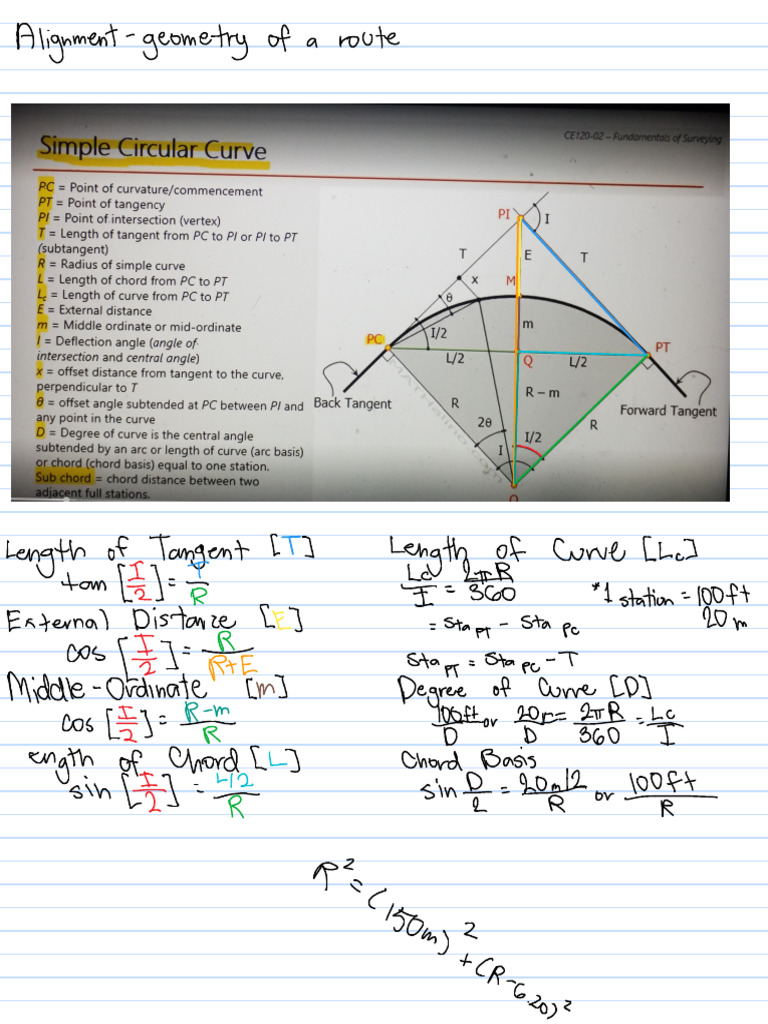 Alignment - geometry of a route
CE120-02 – Fundamentals of Surveying
Simple Circular Curve
PC = Point of curvature/commencement
PT = Point of tangency
PI = Point of intersection (vertex)
T = Length of tangent from PC to PI or PI to PT
(subtangent)
R = Radius of simple curve
L = Length of chord from PC to PT
Lc = Length of curve from PC to PT
E = External distance
m = Middle ordinate or mid-ordinate
I = Deflection angle (angle of
intersection and central angle)
x = offset distance from tangent to the curve,
perpendicular to T
θ = offset angle subtended at PC between PI and
any point in the curve
D = Degree of curve is the central angle
subtended by an arc or length of curve (arc basis)
or chord (chord basis) equal to one station.
Sub chord = chord distance between two
adjacent full stations.
PI I
T E T
x M
θ
PC I/2 m PT
L/2 Q L/2
Back Tangent R R – m Forward Tangent
2θ R
I I/2
O
Length of Tangent [T]
tan [I/2] = T/R
External Distance [E]
cos [I/2] = R/R+E
Middle-Ordinate [m]
cos [I/2] = R-m/R
ength of Chord [L]
sin [I/2] = L/2/R
Length of Curve [Lc]
Lc/I = 2πR/360 *1 station = 100ft
20m
= Sta PT - Sta PC
Sta PT = Sta PC - T
Degree of Curve [D]
100ft/D or 20m/D = 2πR/360 = Lc/I
Chord Basis
sin D/2 = 20m/2/R or 100ft/R
R² = (150m)² + (R-6.20)²